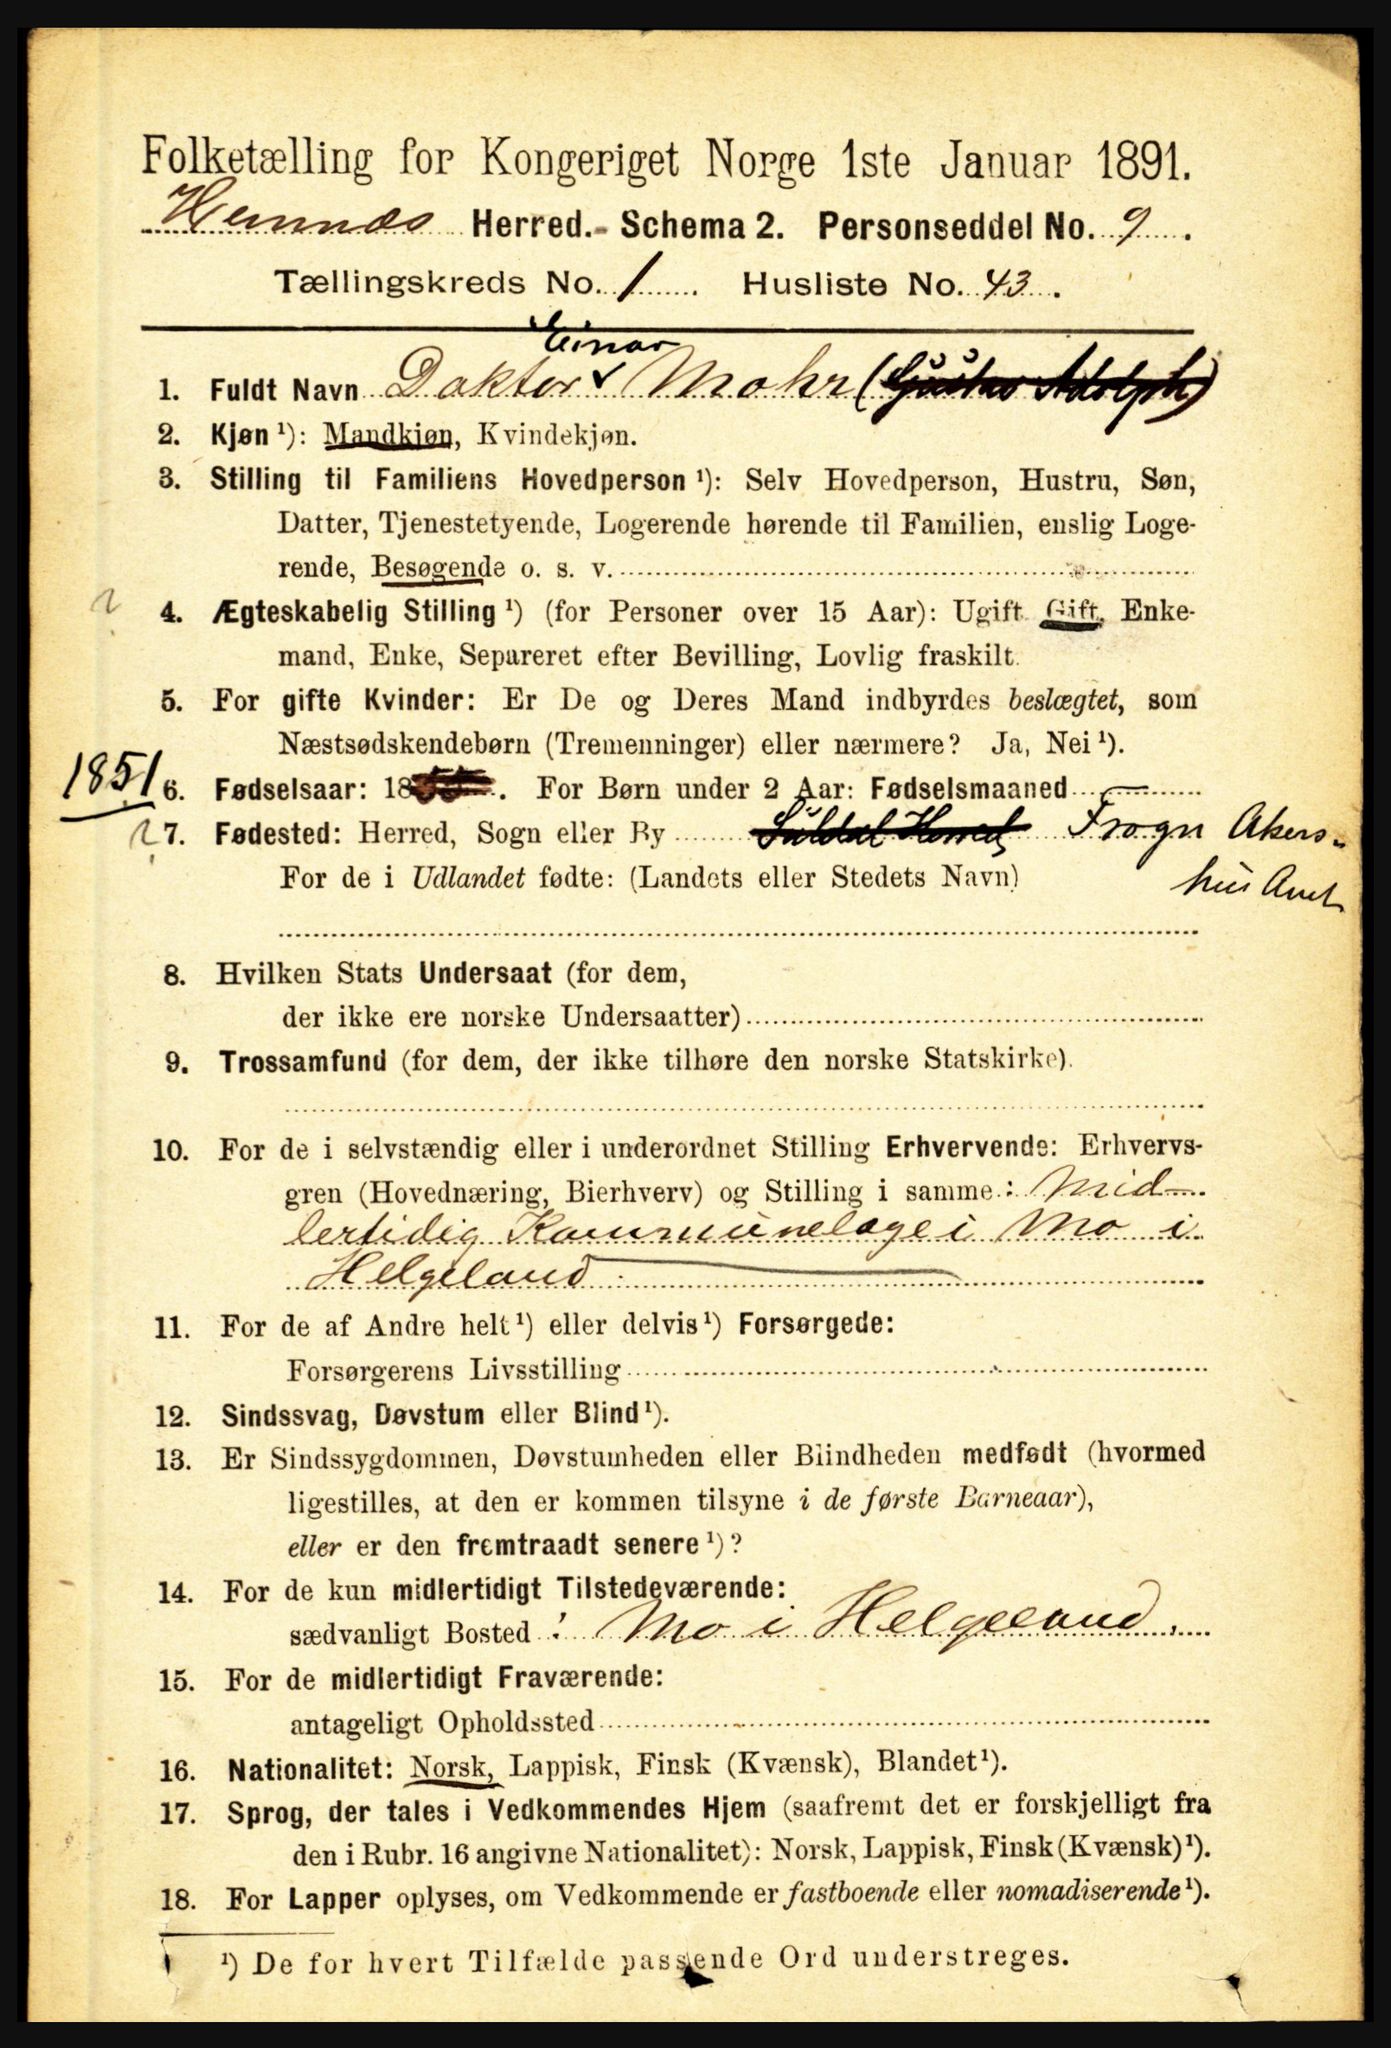 Folketælling for Kongeriget Norge 1ste Januar 1891.
Hemnæs Herred. Schema 2. Personseddel No. 9.
Tællingskreds No. 1. Husliste No. 43.
Einar
1. Fuldt Navn Doktor Mohr (Gustav Adolph)
2. Kjøn ¹): Mandkjøn, Kvindekjøn.
3. Stilling til Familiens Hovedperson ¹): Selv Hovedperson, Hustru, Søn,
Datter, Tjenestetyende, Logerende hørende til Familien, enslig Loge-
rende, Besøgende o. s. v.
4. Ægteskabelig Stilling ¹) (for Personer over 15 Aar): Ugift, Gift, Enke-
mand, Enke, Separeret efter Bevilling, Lovlig fraskilt.
5. For gifte Kvinder: Er De og Deres Mand indbyrdes beslægtet, som
Næstsødskendebørn (Tremenninger) eller nærmere? Ja, Nei ¹).
1851 6. Fødselsaar: 18 . For Børn under 2 Aar: Fødselsmaaned
7. Fødested: Herred, Sogn eller By Suldal Herred Frogn Akers-
For de i Udlandet fødte: (Landets eller Stedets Navn) hus Amt
8. Hvilken Stats Undersaat (for dem,
der ikke ere norske Undersaatter)
9. Trossamfund (for dem, der ikke tilhøre den norske Statskirke).
10. For de i selvstændig eller i underordnet Stilling Erhvervende: Erhvervs-
gren (Hovednæring, Bierhverv) og Stilling i samme: Mid-
lertidig Kommunelæge i Mo i
Helgeland
11. For de af Andre helt ¹) eller delvis ¹) Forsørgede:
Forsørgerens Livsstilling
12. Sindssvag, Døvstum eller Blind ¹).
13. Er Sindssygdommen, Døvstumheden eller Blindheden medfødt (hvormed
ligestilles, at den er kommen tilsyne i de første Barneaar),
eller er den fremtraadt senere ¹)?
14. For de kun midlertidigt Tilstedeværende:
sædvanligt Bosted: Mo i Helgeland.
15. For de midlertidigt Fraværende:
antageligt Opholdssted
16. Nationalitet: Norsk, Lappisk, Finsk (Kvænsk), Blandet ¹).
17. Sprog, der tales i Vedkommendes Hjem (saafremt det er forskjelligt fra
den i Rubr. 16 angivne Nationalitet): Norsk, Lappisk, Finsk (Kvænsk) ¹).
18. For Lapper oplyses, om Vedkommende er fastboende eller nomadiserende ¹).
¹) De for hvert Tilfælde passende Ord understreges.